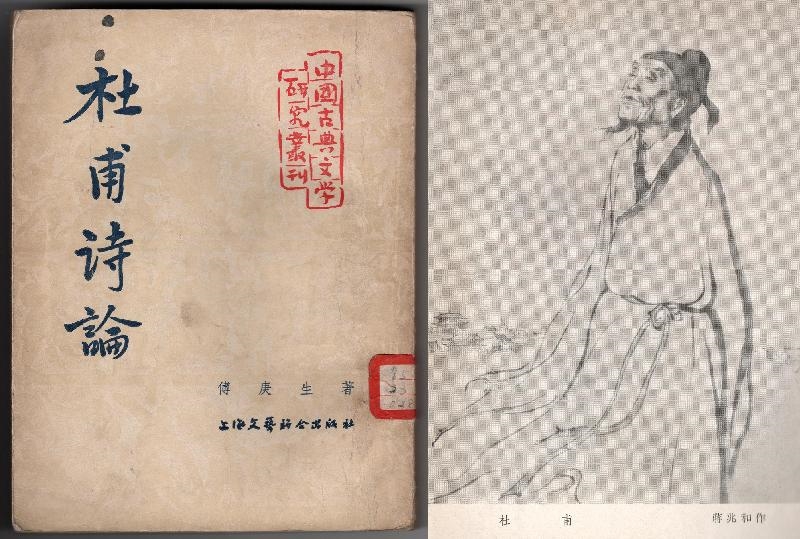 杜甫诗論
中國古典文学
研究叢刊
傅庚生著
上海文藝联合出版社
杜甫
蔣兆和作